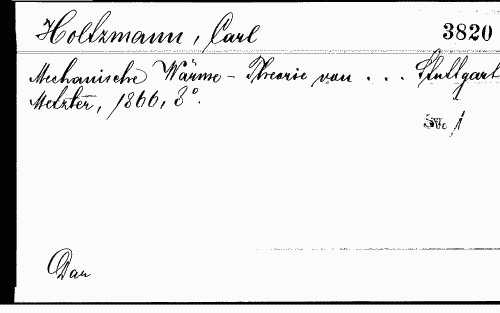 Holtzmann, Carl 3820
Mechanische Wärme - Theorie von . . . Stuttgart
Metzler, 1866, 8°.
1
Dau